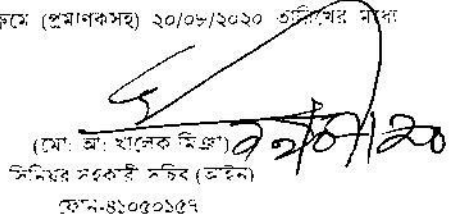 ক্রমে (প্রমাণকসহ) ২০/০৮/২০২০ তারিখের মধ্যে
(মো: আ: খালেক মিঞা)
সিনিয়র সহকারী সচিব (আইন)
ফোন-৪১০৫০১৫৭